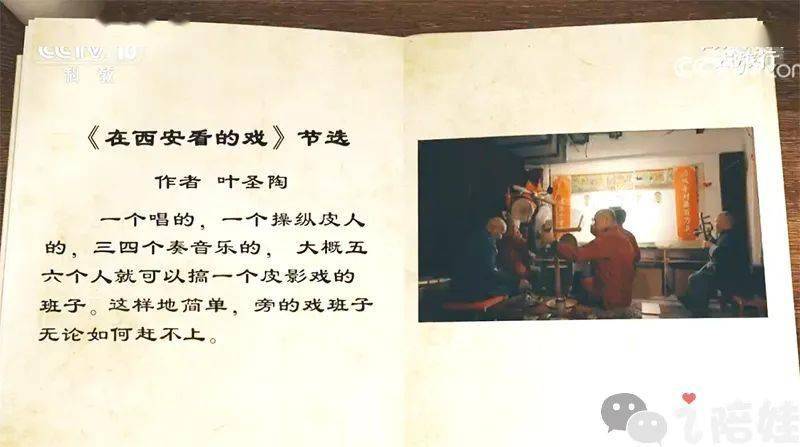 CCTV 10
科教
《在西安看的戏》节选
作者 叶圣陶
一个唱的，一个操纵皮人
的，三四个奏音乐的， 大概五
六个人就可以搞一个皮影戏的
班子。这样地简单，旁的戏班子
无论如何赶不上。
陪娃